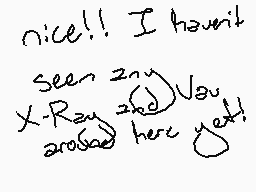 nice!! I haven't
seen any
X-Ray and Vav
around here yet!